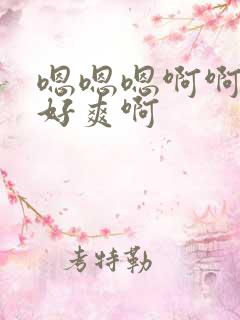 嗯嗯嗯啊啊
好爽啊
考特勒